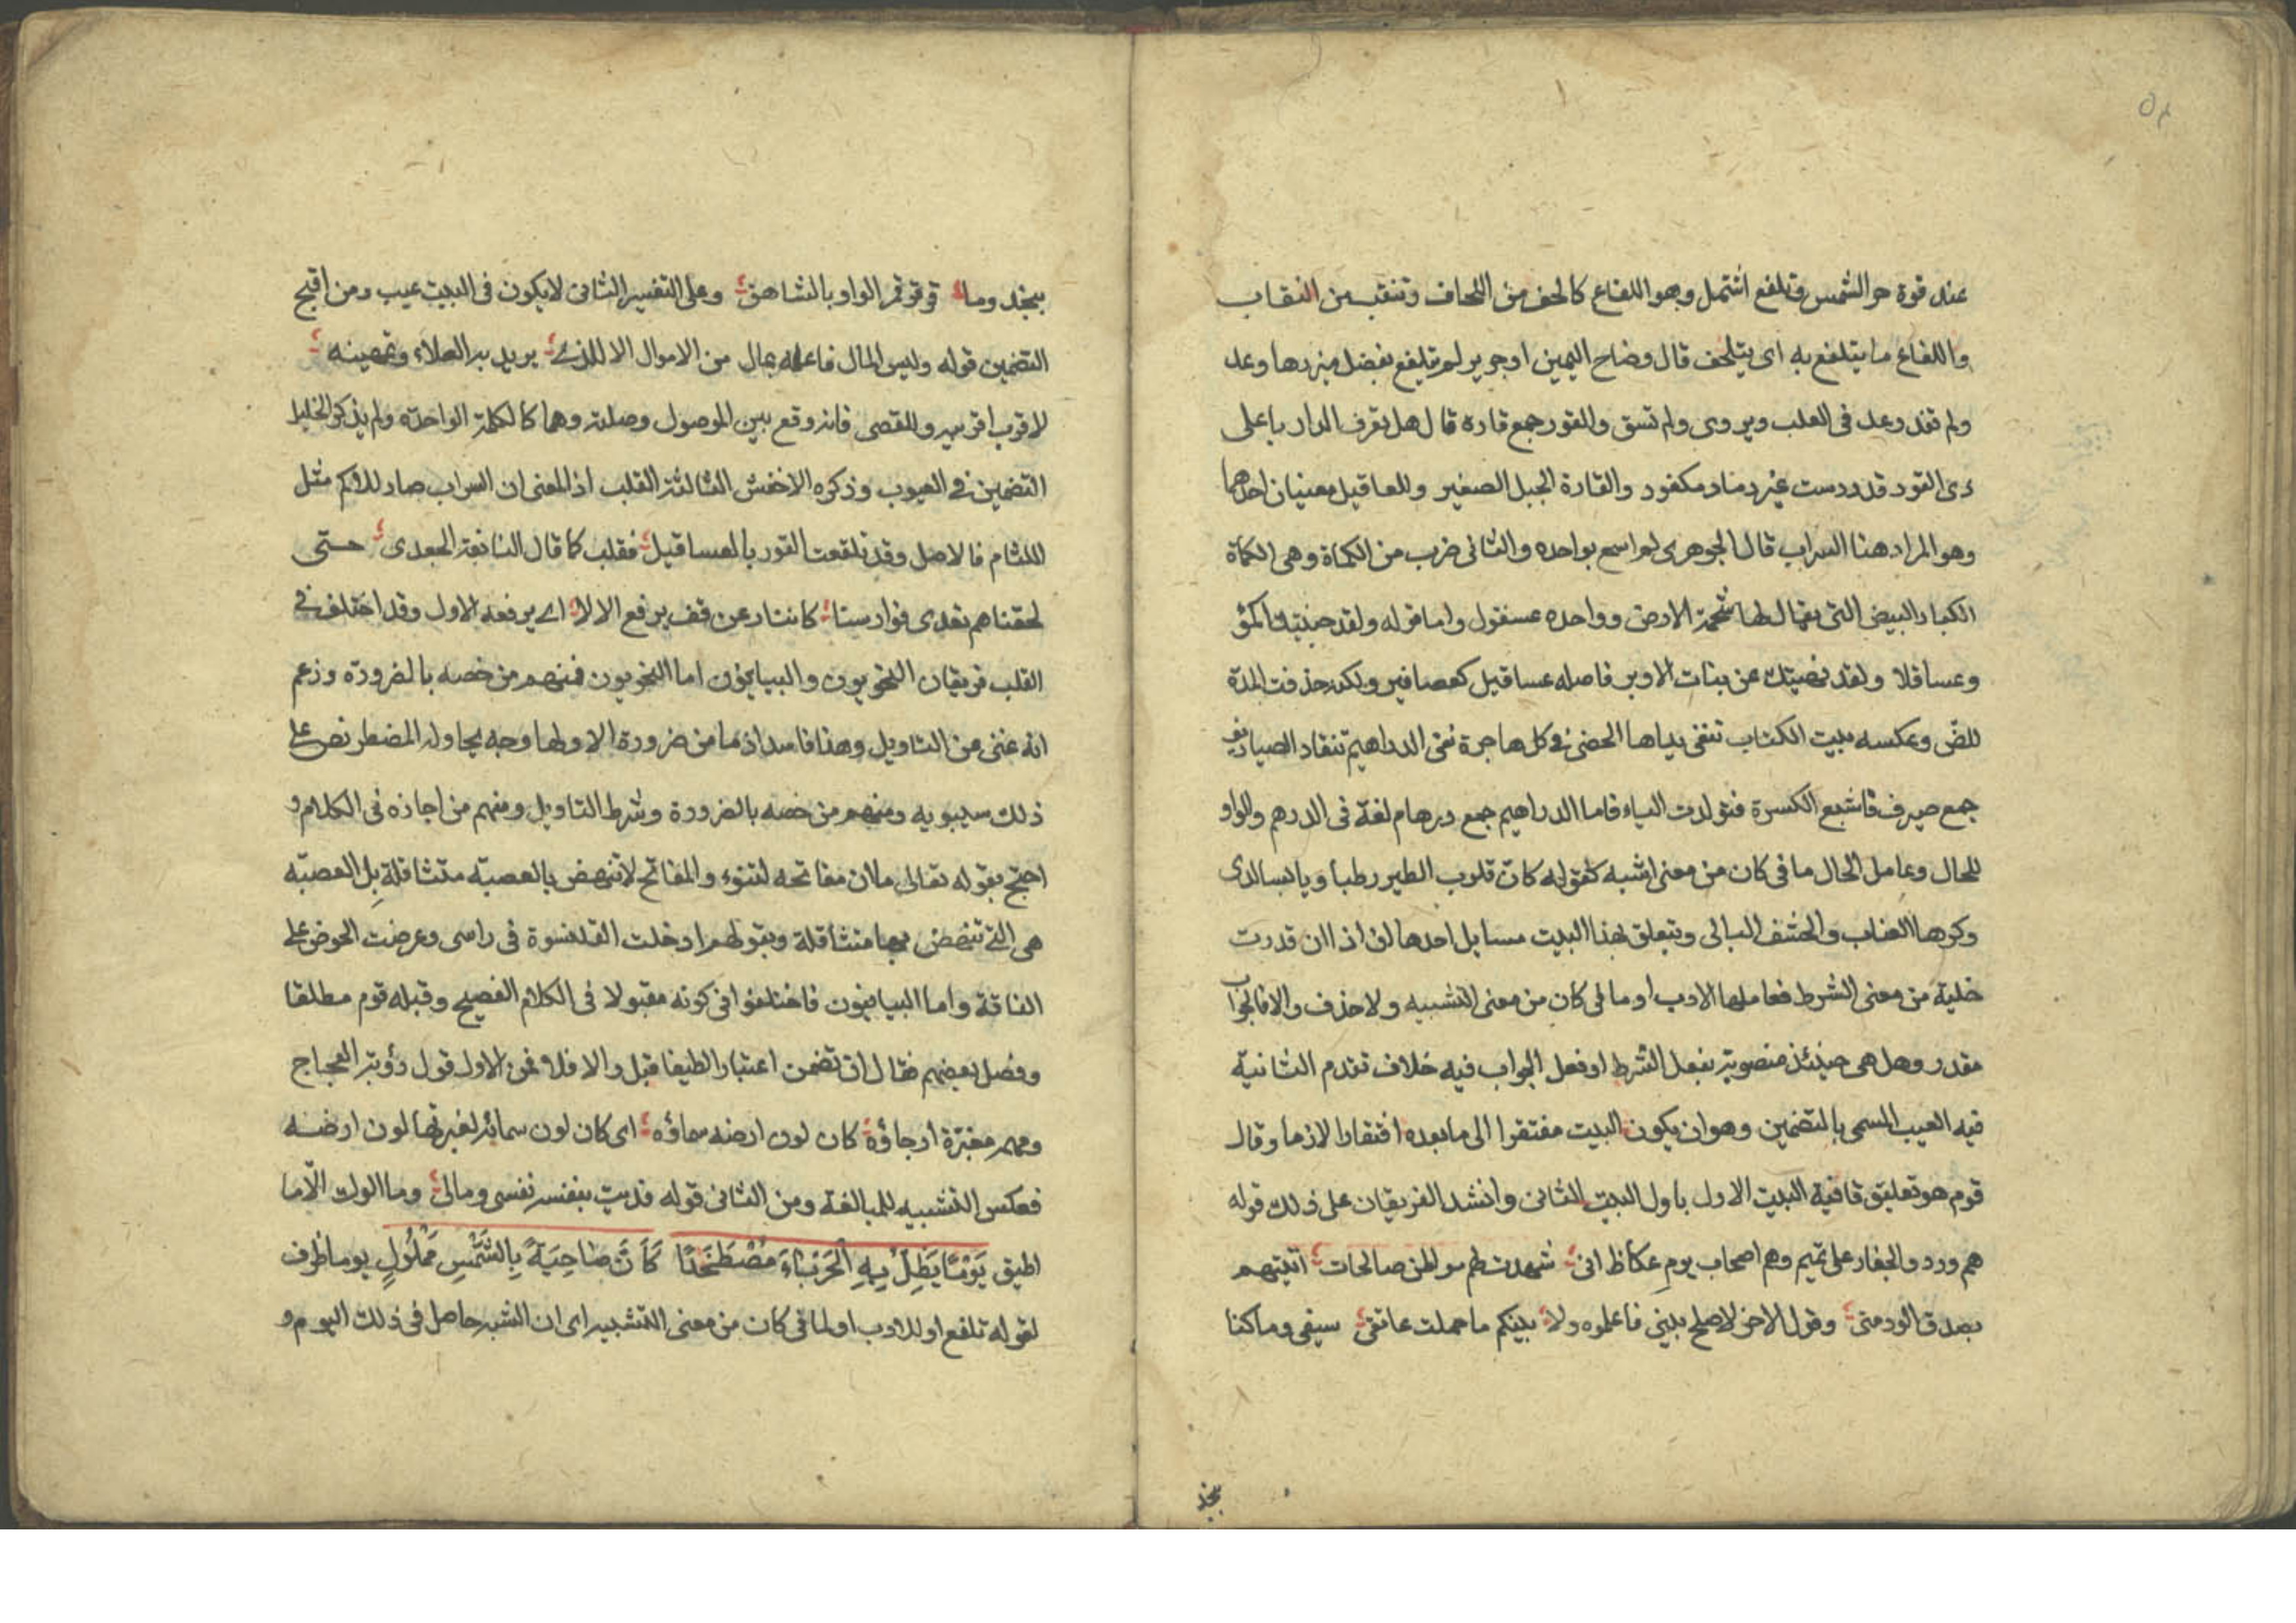 عند قوة حر الشمس وتلفع اشتمل وهو اللفاع كالحف من اللحاف وتنقب من النقاب
واللفاع ما يتلفع به اى يتلحف قال وضاح اليمين او جرير لم تتلفع بفضل ميزرها وعد
ولم تغذ دعد فى العلب ويروى ولم تسق والقور جمع قاره قال هل تعرف الدار باعلى
ذى القور قد درست غير دماد مكفور والقارة الجبل الصغير والعساقيل معنيان احدهما
وهو المراد هنا السراب قال الجوهرى لم اسمع بواحده والثانى ضرب من الكماة وهى الكماة
الكبار البيض التى يقال لها شحمة الارض وواحده عسقول واما قوله ولقد جنيتك اكمؤ
وعساقلا ولقد نهيتك عن بنات الاوبر فاصله عساقيل كعصافير ولكنه حذفت المدة
للض وعكسه بيت الكتاب تنفى يداها الحصى فى كل هاجرة نفى الدراهيم تنقاد الصياريف
جمع صيرف فاشبع الكسرة فتولدت الياء فاما الدراهيم جمع درهام لغة فى الدرهم والواو
للحال وعامل الحال ما فى كان من معنى اشبه كقوله كان قلوب الطير رطبا ويابسا لدى
وكرها العناب والحشف البالى ويتعلق بهذا البيت مسايل احدها ان اذا ان قدرت
خلية من معنى الشرط فعاملها الادب او ما فى كان من معنى التشبيه ولا حذف والا فالجواب
مقدر وهل هى حينئذ منصوبة بفعل الشرط او فعل الجواب فيه خلاف تقدم الثانية
فيه العيب المسمى بالتضمين وهو ان يكون البيت مفتقرا الى ما بعده افتقارا لازما وقال
قوم هو تعليق قافية البيت الاول باول البيت الثانى وانشد الفريقان على ذلك قوله
هم ورد والجفار على تميم وهم اصحاب يوم عكاظ انى شهدت لهم مواطن صالحات اتيتهم
بصدق الود منى وقول الاخر لا صلح بينى فاعلموه ولا بينكم ما حملت عاتقى سيفى وما كنا
بنجد
بنجد وما قرقر قمر الواد بالشاهق وعلى التفسير الثانى لا يكون فى البيت عيب ومن اقبح
التضمين قوله وليس المال فاعلمه بمال من الاموال الا للذى يريد به العلاء ويمتهنه
لاقرب اقربيه وللقصى فانه وقع بين الموصول وصلته وهما كالكلمة الواحدة ولم يذكر الخليل
التضمين فى العيوب وذكره الاخفش الثالثة القلب اذ المعنى ان السراب صار للاكم مثل
اللثام فالاصل وقد تلفعت القور بالعساقيل فقلب كما قال النابغة الجعدى حتى
لحقناهم تعدى فوارسنا كاننا رعن قف يرفع الالا اى يرفعه الاول وقد اختلف فى
القلب فريقان النحويون والبيانيون اما النحويون فمنهم من خصه بالضرورة وزعم
انه غنى عن التاويل وهذا فاسد اذ ما من ضرورة الا ولها وجه يحاوله المضطر نص على
ذلك سيبويه ومنهم من خصه بالضرورة وشرط التاويل ومنهم من اجازه فى الكلام و
احتج بقوله تعالى ما ان مفاتحه لتنوء والمفاتح لا تنهض بالعصبة متثاقلة بل العصبة
هى التى تنهض بها متثاقلة وبقولهم ادخلت القلنسوة فى راسى وعرضت الحوض على
الناقة واما البيانيون فاختلفوا فى كونه مقبولا فى الكلام الفصيح وقبله قوم مطلقا
وفصل بعضهم فقال ان تضمن اعتبارا لطيفا قبل والا فلا فمن الاول قول رؤبة العجاج
ومهمه مغبرة ارجاؤه كان لون ارضه سماؤه اى كان لون سمائه لغبرتها لون ارضه
فعكس التشبيه للمبالغة ومن الثانى قوله فديت بنفسه نفسى ومالى وما الوك الا ما
اطيق يَوْمًا يَظِلُّ بِهِ الْحَرْبَاءُ مُصْطَخَدًا كَأَنَّ ضَاحِيَةً بِالشَّمْسِ مَمْلُولٍ يوما ظرف
لقوله تلفع او للادب او لما فى كان من معنى التشبيه اى ان الشبه حاصل فى ذلك اليوم و